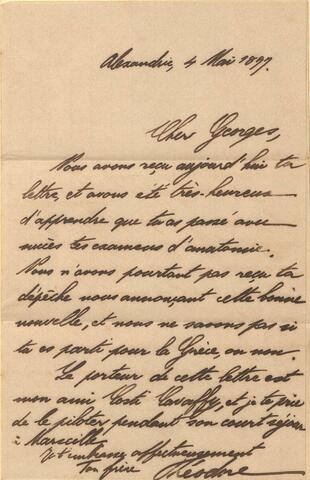 Alexandrie, 4 Mai 1897.
Cher Georges,
Nous avons reçu aujourd'hui ta
lettre, et avons été très-heureux
d'apprendre que tu as passé avec
succès tes examens d'anatomie.
Nous n'avons pourtant pas reçu ta
dépêche nous annonçant cette bonne
nouvelle, et nous ne savons pas si
tu es parti pour la Grèce, ou non.
Le porteur de cette lettre est
mon ami Costi Cavaffy, et je te prie
de le piloter pendant son court séjour
à Marseille
Je t'embrasse affectueusement
ton frère
Théodore